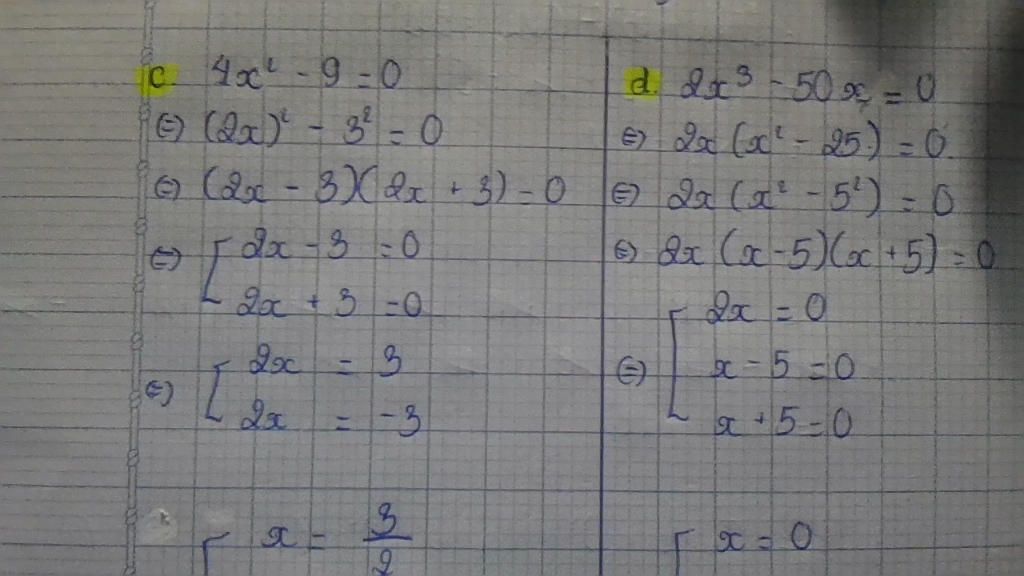 c 4x² - 9 = 0
⇔ (2x)² - 3² = 0
⇔ (2x - 3)(2x + 3) = 0
⇔ [ 2x - 3 = 0
2x + 3 = 0
⇔ [ 2x = 3
2x = -3
[ x = 3/2
d. 2x³ - 50x = 0
⇔ 2x (x² - 25) = 0
⇔ 2x (x² - 5²) = 0
⇔ 2x (x - 5)(x + 5) = 0
⇔ [ 2x = 0
x - 5 = 0
x + 5 = 0
[ x = 0